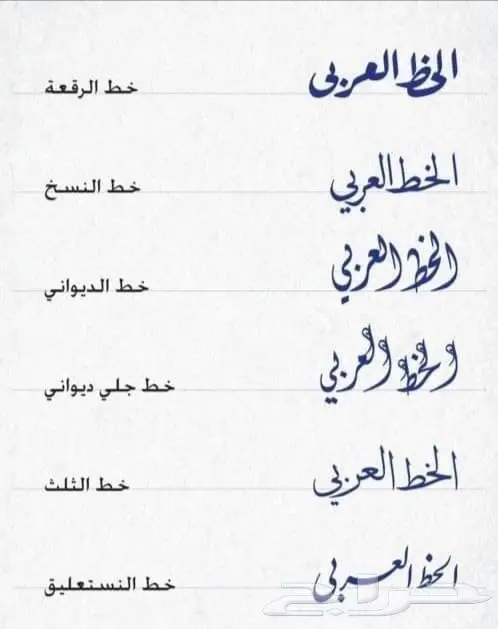 الخط العربي خط الرقعة
الخط العربي خط النسخ
الخط العربي خط الديواني
الخط العربي خط جلي ديواني
الخط العربي خط الثلث
الخط العربي خط النستعليق
حراج